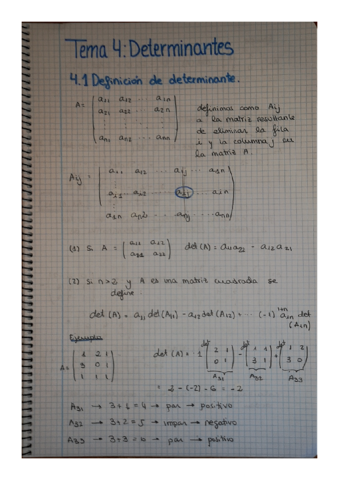 Tema 4: Determinantes
4.1 Definición de determinante.
A = ( a11 a12 a1n
a21 a22 ... a2n
an1 an2 ... ann )
definimos como Aij
a la matriz resultante
de eliminar la fila
i y la columna j en
la matriz A.
Aij = ( a11 a12 ... aij ... a1n
... aij ... ain
an2 ... anj ... ann )
(1) Si A = ( a11 a12
a21 a22 ) det (A) = a11 a22 - a12 a21
(2) Si n>2 y A es una matriz cuadrada se
define
det (A) = a11 det (A11) - a12 det (A12) + ... (-1)^1+n a1n det
(A1n)
Ejemplo:
A = ( 1 2 1
3 0 1
1 1 1 )
det (A) = 1 ( 2 1
0 1 ) - ( 1 1
3 1 ) + ( 1 2
3 0 )
A31 A32 A33
= 2 - (-2) - 6 = -2
A31 → 3+1 = 4 → par → positivo
A32 → 3+2 = 5 → impar → negativo
A33 → 3+3 = 6 → par → positivo